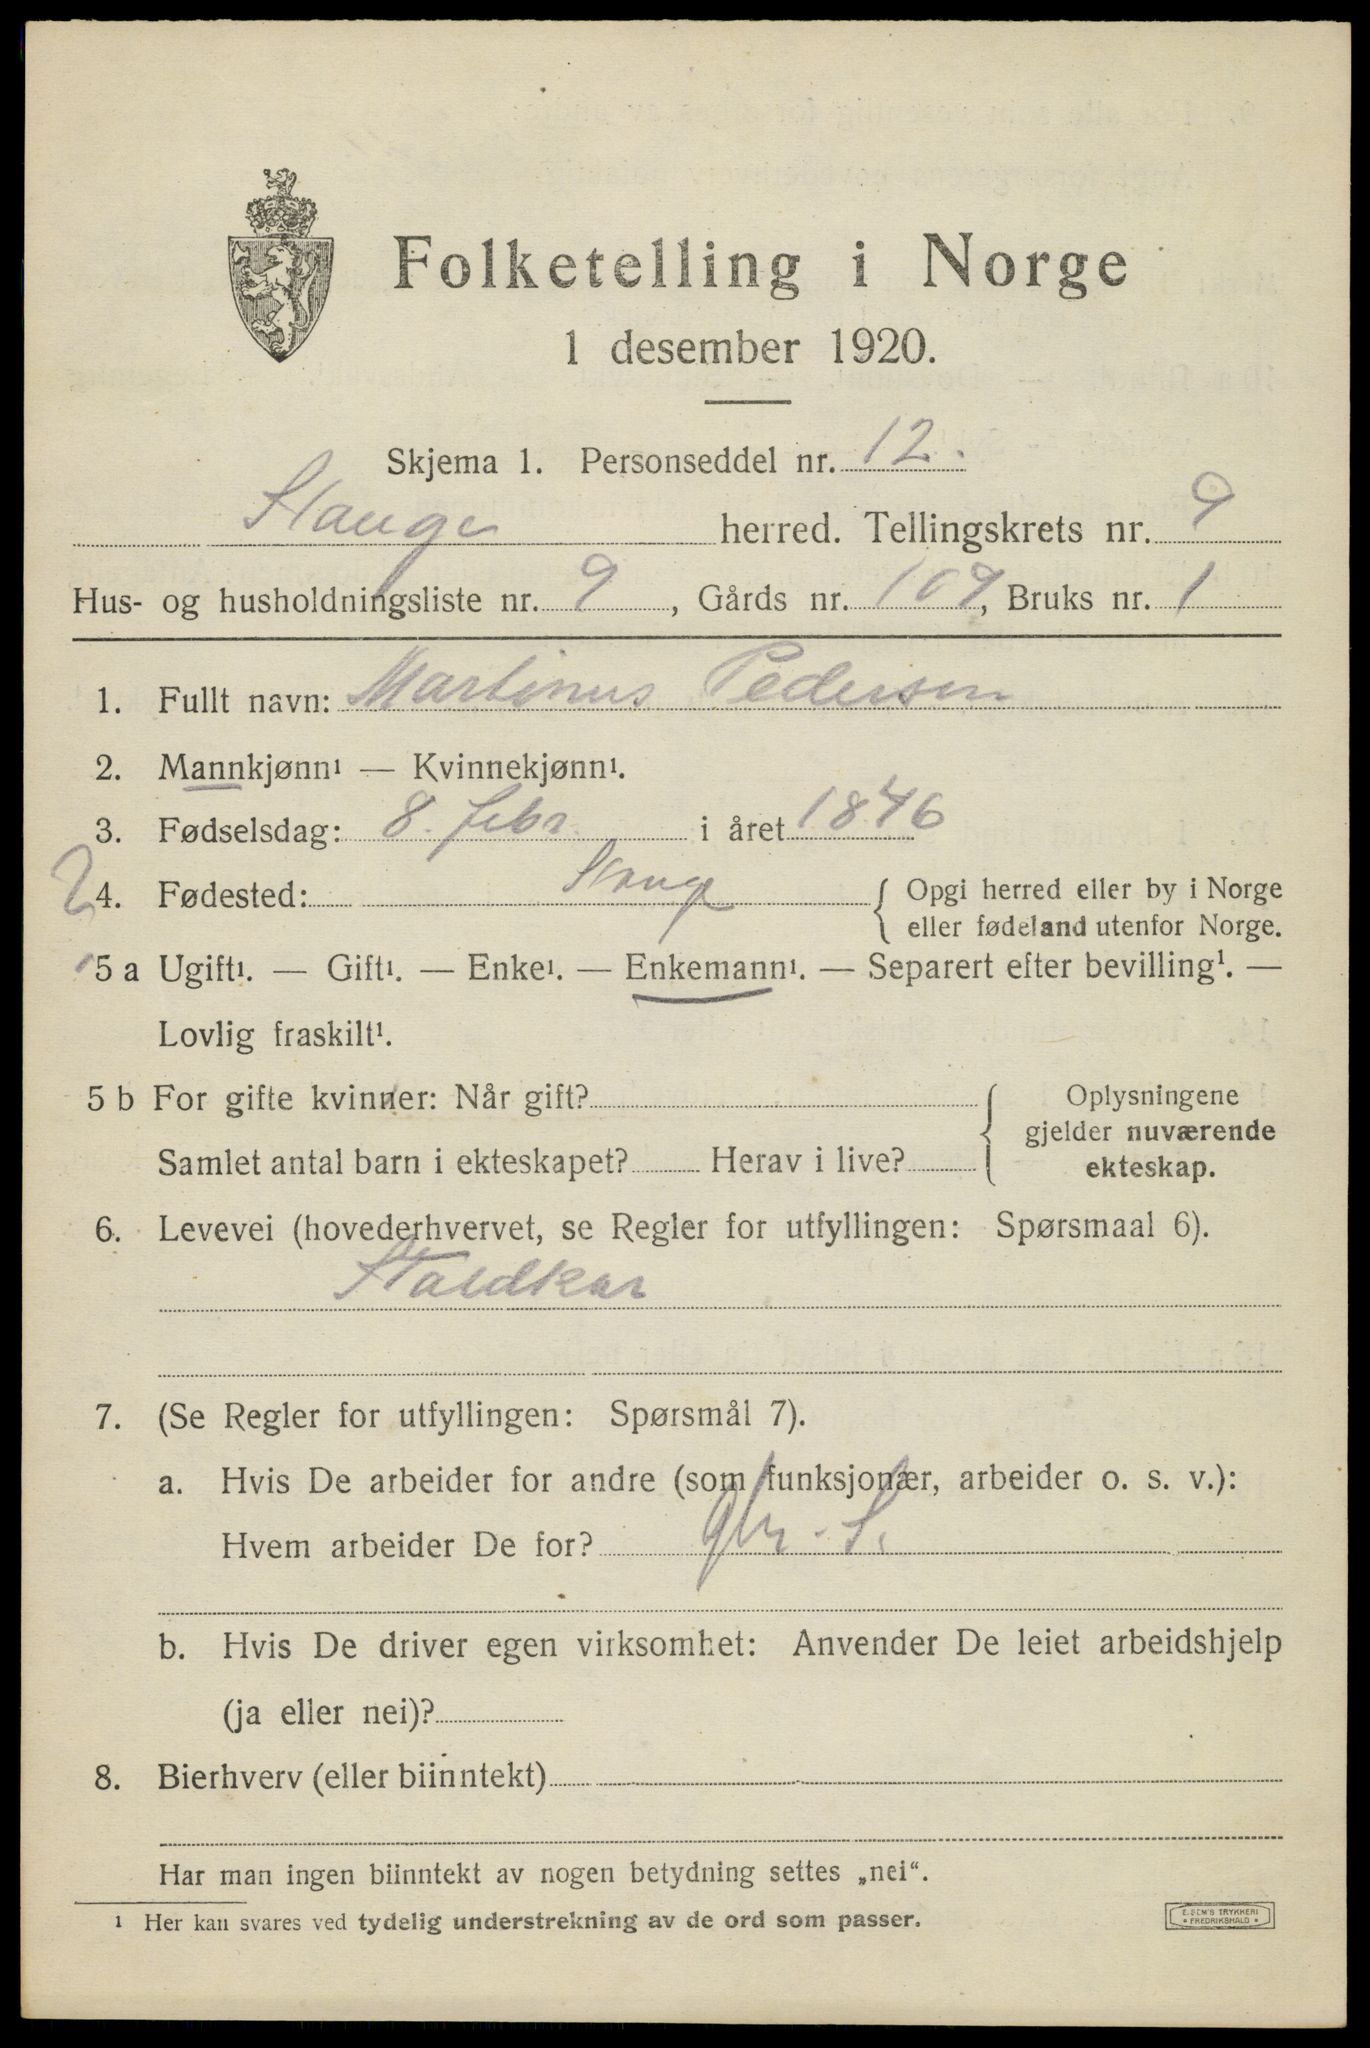 Folketelling i Norge
1 desember 1920.
Skjema 1. Personseddel nr. 12.
Stange herred. Tellingskrets nr. 9
Hus- og husholdningsliste nr. 9, Gårds nr. 109, Bruks nr. 1
1. Fullt navn: Martinus Pedersen
2. Mannkjønn¹ — Kvinnekjønn¹.
3. Fødselsdag: 8. febr i året 1846
4. Fødested: Stange { Opgi herred eller by i Norge
eller fødeland utenfor Norge.
5 a Ugift¹. — Gift¹. — Enke¹. — Enkemann¹. — Separert efter bevilling¹. —
Lovlig fraskilt¹.
5 b For gifte kvinner: Når gift? { Oplysningene
gjelder nuværende
Samlet antal barn i ekteskapet? Herav i live? ekteskap.
6. Levevei (hovederhvervet, se Regler for utfyllingen: Spørsmaal 6).
Staldkar
7. (Se Regler for utfyllingen: Spørsmål 7).
a. Hvis De arbeider for andre (som funksjonær, arbeider o. s. v.):
Hvem arbeider De for?
b. Hvis De driver egen virksomhet: Anvender De leiet arbeidshjelp
(ja eller nei)?
8. Bierhverv (eller biinntekt)
Har man ingen biinntekt av nogen betydning settes „nei“.
¹ Her kan svares ved tydelig understrekning av de ord som passer.
E. SEM'S TRYKKERI
• FREDRIKSHALD •